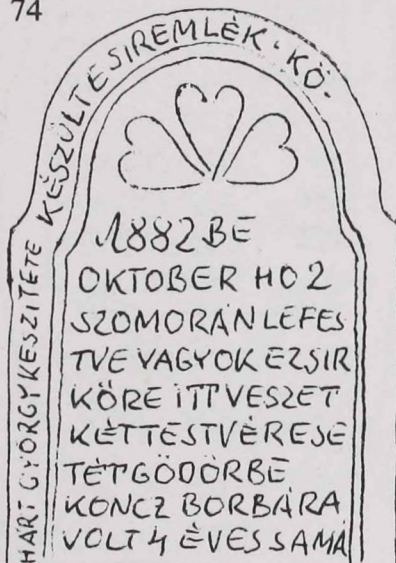 74
HÁRI GYÖRGY KESZITÉTE KÉSZÜLT E SIREMLÉK · KŐ ·
1882 BE
OKTOBER HO 2
SZOMORÁN LEFES
TVE VAGYOK EZSIR
KÖRE ITT VESZET
KÉT TESTVÉR ESE
TÉT GÖDÖRBE
KONCZ BORBÁRA
VOLT 4 ÉVES S AMÁ